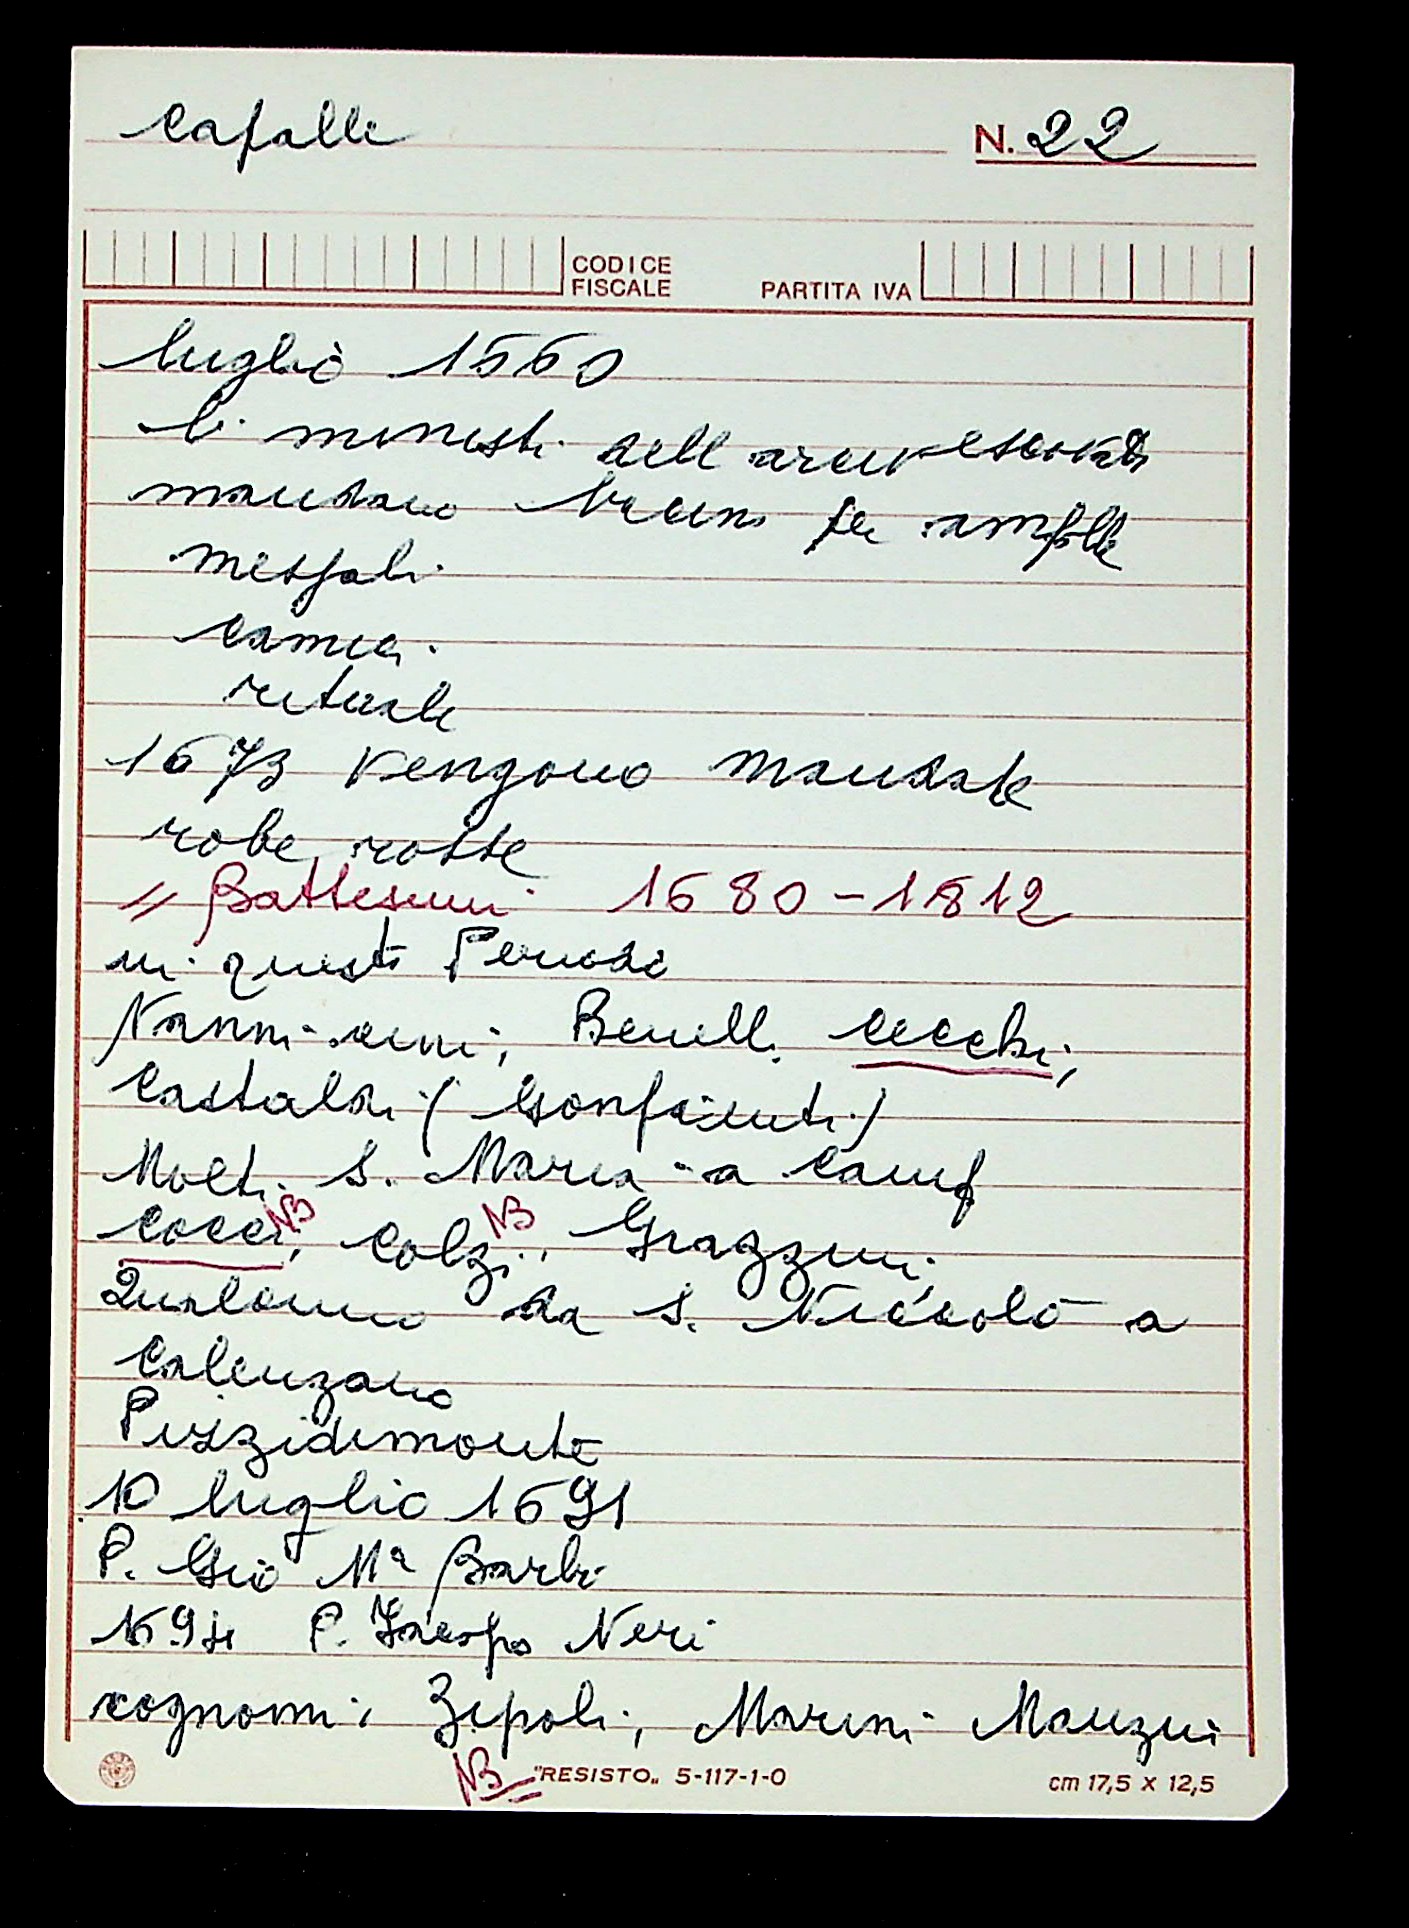 Cafalli
N. 22
CODICE
FISCALE
PARTITA IVA
luglio 1660
li ministri dell arcivescovado
mandano per ampolle
messali
camici
rituale
1673 vengono mandate
robe rotte
" Battesimi 1680 - 1812
in questo Periodo
Nannicini, Benelli Cecchi,
Castaldi (Gonfienti)
Molti S. Maria a Camp
NB NB
Cocci, Colzi, Grazzini
Qualcuno da S. Niccolò a
Calenzano
Pizzidimonte
10 luglio 1691
P. Gio Mª Barbi
1694 P. Jacopo Neri
cognomi: Zipoli, Marini Manzui
NB
"RESISTO„ 5-117-1-0
cm 17,5 x 12,5